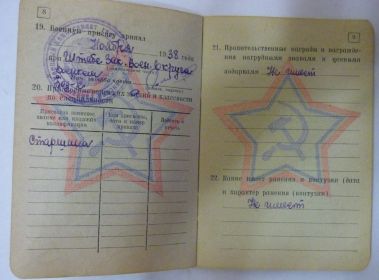 8
19. Военную присягу принял
Ноября 1938 года
при Штабе Зак. Воен Округа
20. воинских званий и классность
по специальности
Присвоено воинское
звание или классная
квалификация
Кем присвоено,
дата и номер
приказа
Подпись и
печать
Старшина
9
21. Правительственные награды и награжде-
ния нагрудными знаками и ценными
подарками Не имеет
22. Какие имеет ранения и контузии (дата
и характер ранения (контузии)
Не имеет